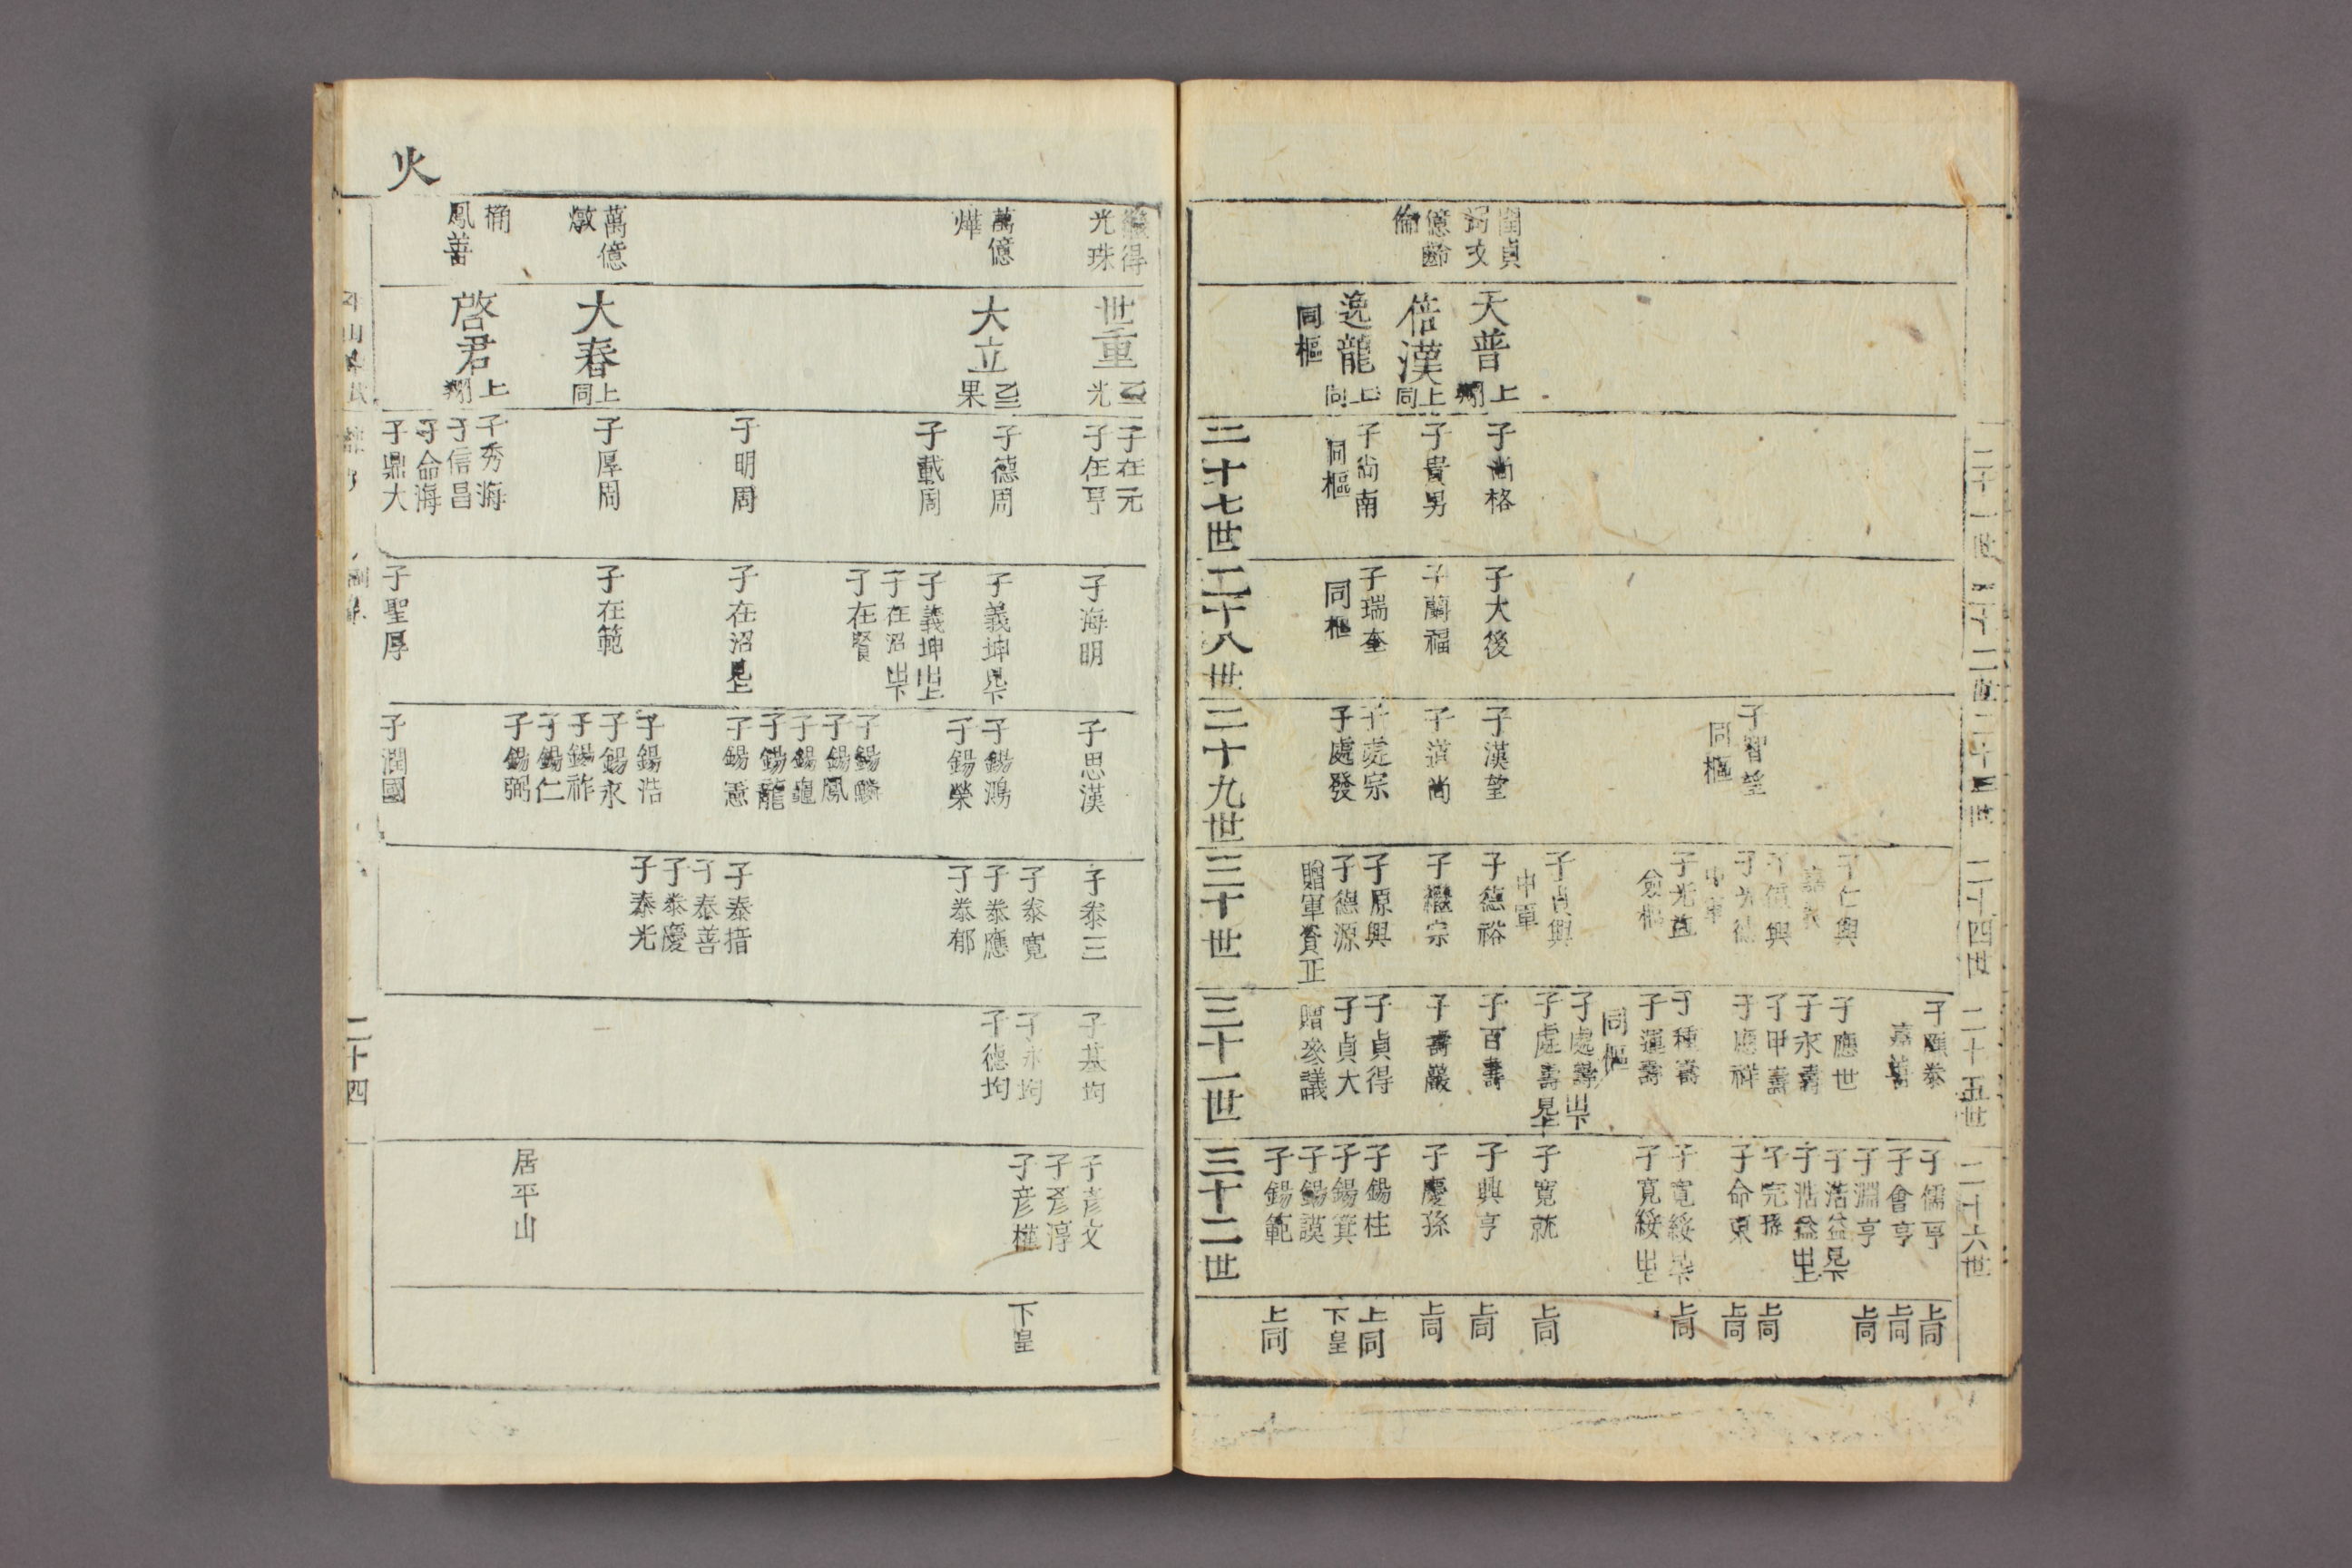 二十四世
二十五世
二十六世
子仁興
子願泰
嘉善
子儒亨
上同
子會亨
上同
子淵亨
上同
子應世
子浩益見下
子永壽
子浩益出上
子甲壽
子完孫
上同
子應祥
子命東
上同
子智望
同樞
子光益
僉樞
子種壽
子寬綏見下
上同
子運壽
子寬綏出上
同樞
子貞興
中軍
子處壽出下
子處壽見上
子寬就
上同
閏貞
天普
上
子尚格
子大後
子漢望
子德裕
子百壽
子興亨
上同
億齡
倫
倍漢
上同
子貴男
子蘭福
子道尚
子繼宗
子壽嚴
子慶孫
上同
逸龍
上同
同樞
子尚南
同樞
子瑞奎
同樞
子處宗
子處發
子原興
子德源
贈軍資正
子貞得
子貞大
贈參議
子錫柱
上同
子錫箕
下皇
子錫謨
子錫範
上同
二十七世
二十八世
二十九世
三十世
三十一世
三十二世
繼得
光珠
世重
子在元
子在亨
子海明
子思漢
子泰三
子基均
子彦文
子彦淳
子彦權
下皇
萬億
燁
大立
子德周
子義坤見下
子錫鴻
子錫榮
子泰寬
子泰應
子泰郁
子永均
子德均
子載周
子義坤出上
子在沼出下
子在賢
子錫麟
子錫鳳
子錫龜
子錫龍
子錫憲
子明周
子在沼見上
子泰揩
子泰善
子泰慶
子泰光
萬億
燉
大春
上同
子厚周
子在範
子錫浩
子錫永
子錫祚
子錫仁
子錫弼
居平山
桶
鳳善
啓君
上
子秀海
子信昌
子命海
子鼎大
子聖厚
子潤國
火
二十四